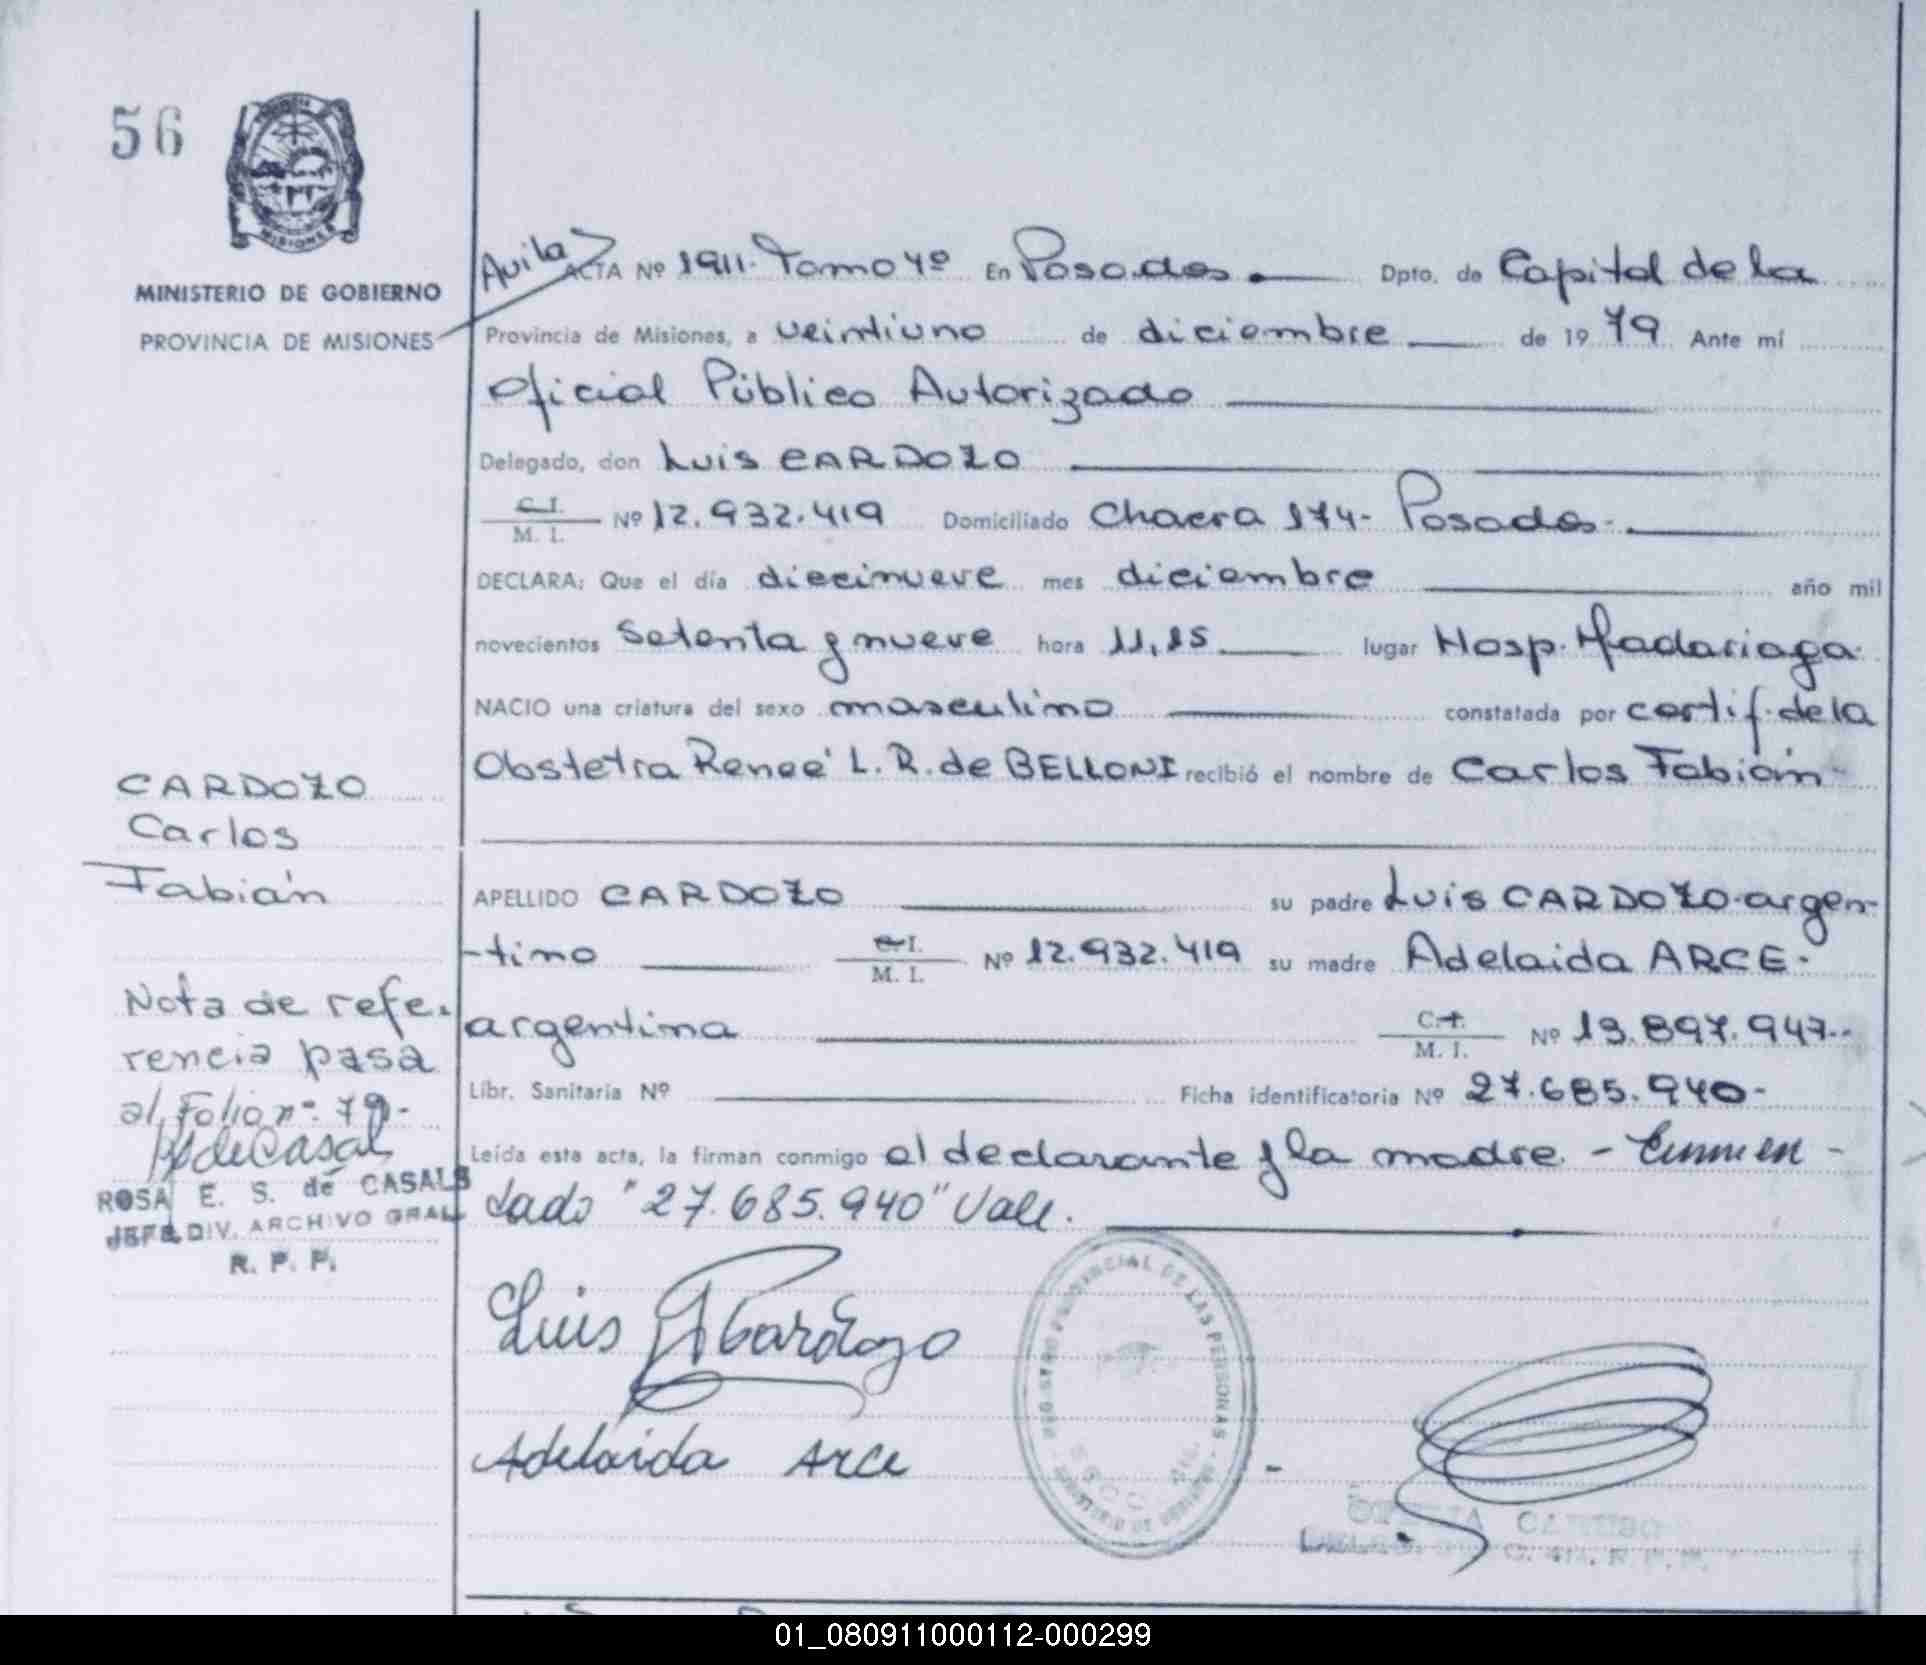 56
MINISTERIO DE GOBIERNO
PROVINCIA DE MISIONES
Avila
ACTA Nº 1911. Tomo 4º En Posadas Dpto. de Capital de la
Provincia de Misiones, a veintiuno de diciembre de 1979 Ante mí
Oficial Público Autorizado
Delegado, don Luis CARDOZO
C. I.
M. I. Nº 12.932.419 Domiciliado Chacra 174- Posadas-
DECLARA: Que el día diecinueve mes diciembre año mil
novecientos setenta y nueve hora 11,15 lugar Hosp. Madariaga
NACIO una criatura del sexo masculino constatada por certif. de la
Obstetra Reneé L. R. de BELLONI recibió el nombre de Carlos Fabián-
APELLIDO CARDOZO su padre Luis CARDOZO-argen-
-tino C. I.
M. I. Nº 12.932.419 su madre Adelaida ARCE-
argentina C. I.
M. I. Nº 13.897.947-
Libr. Sanitaria Nº Ficha identificatoria Nº 27.685.940-
Leída esta acta, la firman conmigo el declarante y la madre.- Enmen-
dado "27.685.940" Vale.
Luis Cardozo
Adelaida Arce
CARDOZO
Carlos
Fabián
Nota de refe-
rencia pasa
al Folio nº 79-
RSdeCasals
ROSA E. S. de CASALS
JEFE DIV. ARCHIVO GRAL.
R. P. P.
REGISTRO PROVINCIAL DE LAS PERSONAS
MINISTERIO DE GOBIERNO
01_080911000112-000299